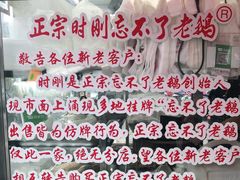 正宗时刚忘不了老鹅®
敬告各位新老客户:
时刚是正宗忘不了老鹅创始人
现市面上涌现多地挂牌“忘不了老鹅
出售皆为仿牌行为,正宗忘不了老鹅
仅此一家,绝无分店,望各位新老客户
相互转告购买正宗忘不了老鹅